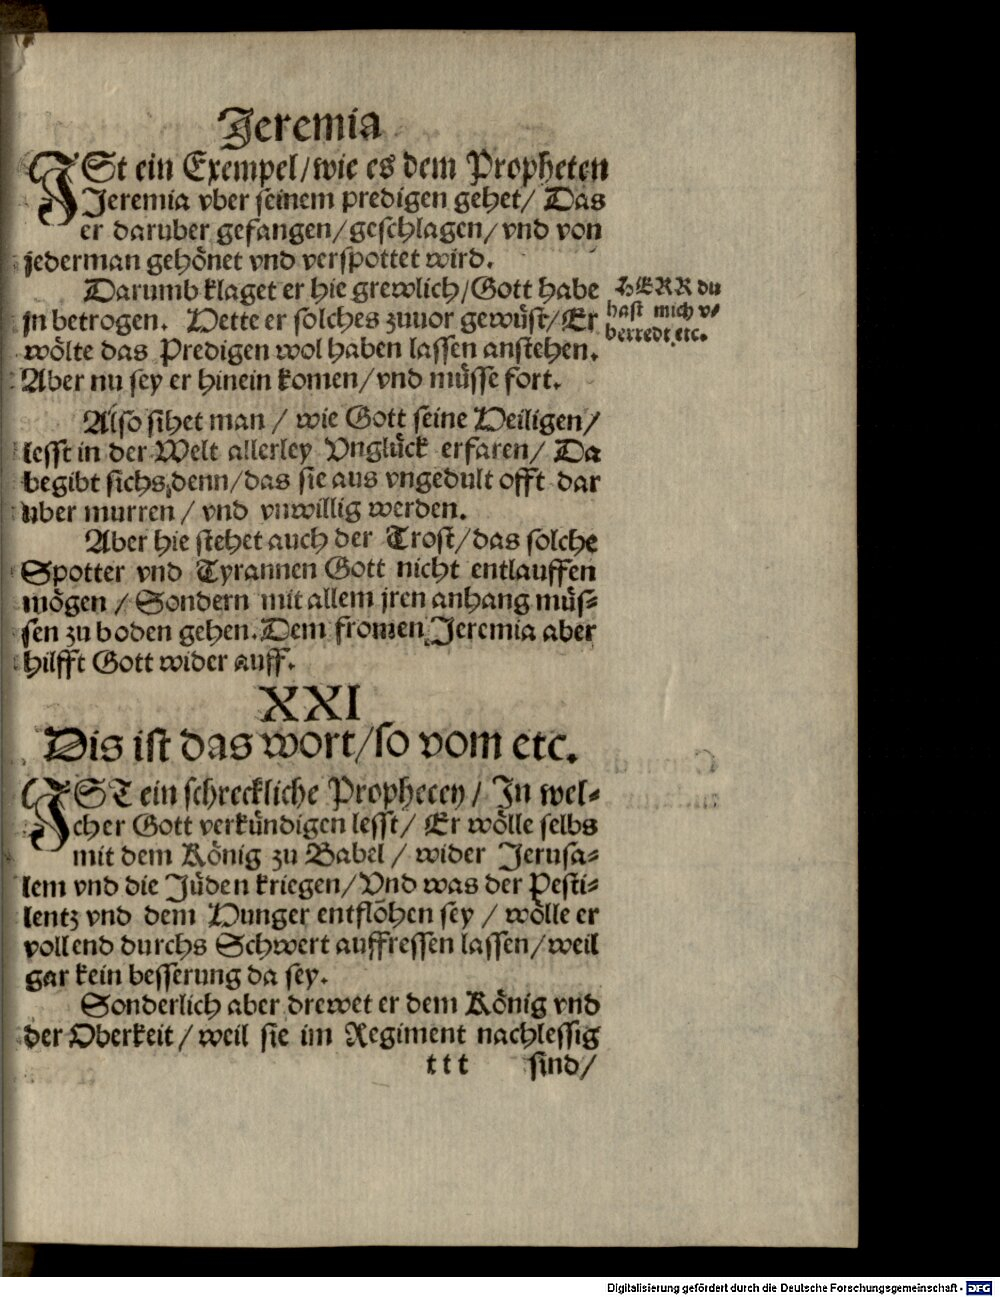 Jeremia
JSt ein Exempel/wie es dem Propheten
Jeremia vber seinem predigen gehet/ Das
er daruber gefangen/geschlagen/vnd von
jederman gehönet vnd verspottet wird.
Darumb klaget er hie grewlich/Gott habe
jn betrogen. Hette er solches zuuor gewüst/Er
wölte das Predigen wol haben lassen anstehen.
Aber nu sey er hinein komen/vnd müsse fort.
HERR du
hast mich v/
berredt etc.
Also sihet man / wie Gott seine Heiligen/
lesst in der Welt allerley Vnglück erfaren/ Da
begibt sichs denn/das sie aus vngedult offt dar
uber murren / vnd vnwillig werden.
Aber hie stehet auch der Trost/das solche
Spotter vnd Tyrannen Gott nicht entlauffen
mögen / Sondern mit allem jren anhang müs-
sen zu boden gehen. Dem fromen Jeremia aber
hilfft Gott wider auff.
XXI
Dis ist das wort/so vom etc.
JST ein schreckliche Prophecey/ Jn wel-
cher Gott verkündigen lesst/ Er wölle selbs
mit dem König zu Babel / wider Jerusa-
lem vnd die Jüden kriegen/Vnd was der Pesti-
lentz vnd dem Hunger entflöhen sey / wölle er
vollend durchs Schwert auffressen lassen/weil
gar kein besserung da sey.
Sonderlich aber drewet er dem König vnd
der Oberkeit/ weil sie im Regiment nachlessig
t t t sind/
Digitalisierung gefördert durch die Deutsche Forschungsgemeinschaft - DFG